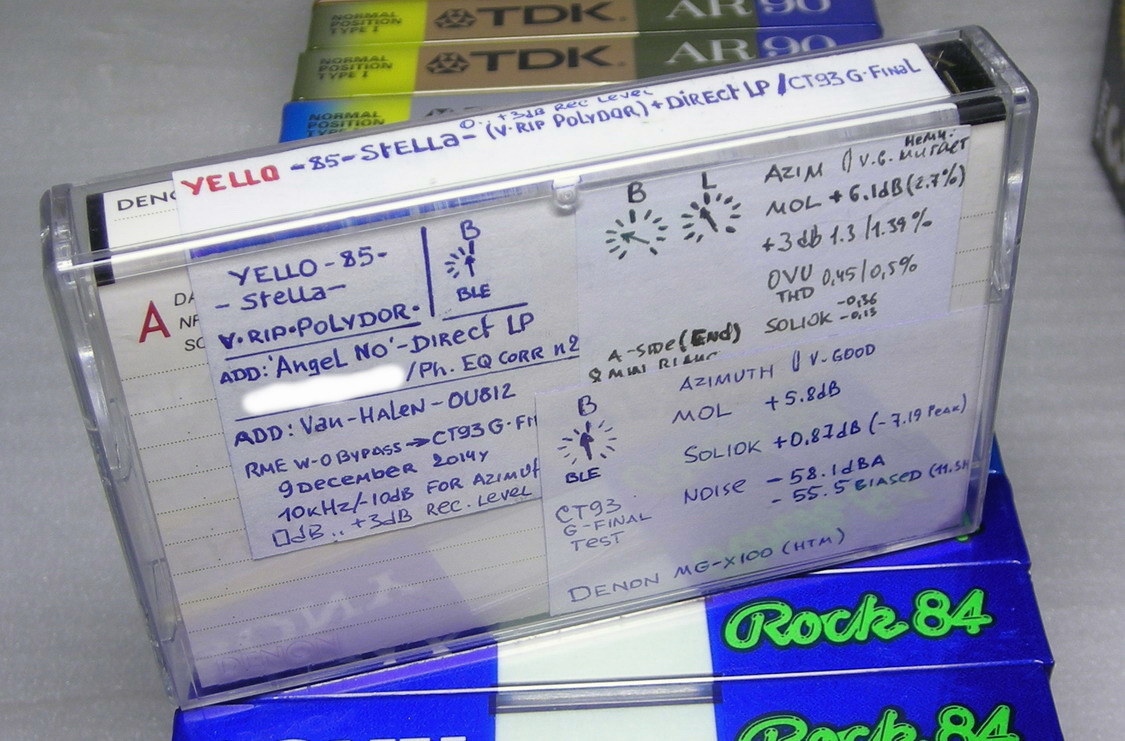 NORMAL POSITION TYPE I
TDK AR 90
NORMAL POSITION TYPE I
TDK AR 90
NORMAL POSITION
0..+3dB REC LEVEL
YELLO -85- StELLa- (V.RIP POLYDOR)+DIRECt LP /CT93 G-FINAL
YELLO-85-
-Stella-
V.RIP.POLYDOR.
ADD:'Angel No'-Direct LP
/Ph. EQ CORR n2
ADD: Van-HALEN-OU812
RME W-O BYPASS→CT93 G-
9 DECEMBER 2014y
10KHz/-10dB FOR AZIMUt
0dB..+3dB REC. LEVEL
B
BLE
A
B L
A-SIDE (END)
AZIM V.G.
MOL +6.1dB (2.7%)
+3dB 1.3/1.39%
OVU 0,45/0,5%
THD
SOLIOK -0,36
-0,13
B
BLE
CT93
G-FINAL
TEST
AZIMUTH V-GOOD
MOL +5.8dB
SOLIOK +0,87dB (-7.19 Peak)
NOISE -58.1dBA
-55.5 BIASED
DENON MG-X100 (HTM)
Rock 84
Rock 84